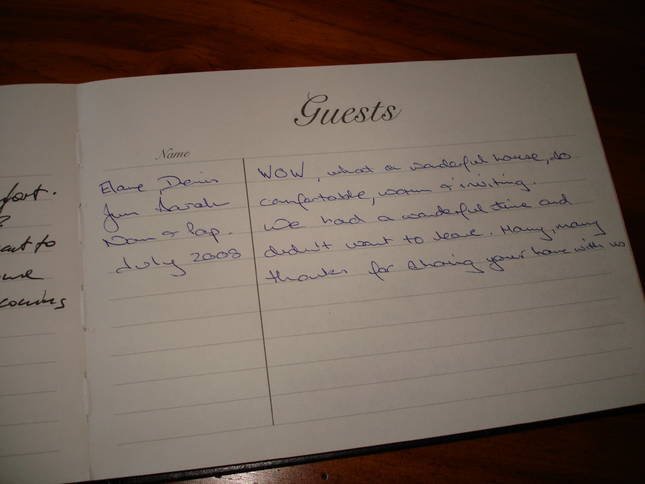 Guests
Name
Elaine, Denis
Jim Sarah
Nan & Pap.
July 2008
WOW, what a wonderful house, so
comfortable, warm & inviting.
We had a wonderful time and
didn't want to leave. Many, many
thanks for sharing your home with us
fort.
to
coming